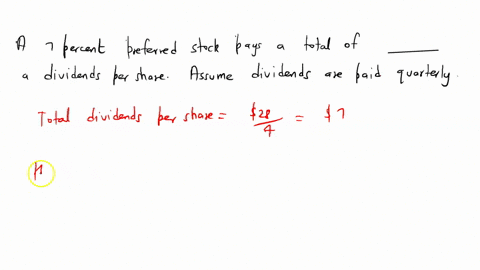 A 7 percent preferred stock pays a total of ____
a dividends per share. Assume dividends are paid quarterly.
Total dividends per share = $28/4 = $7